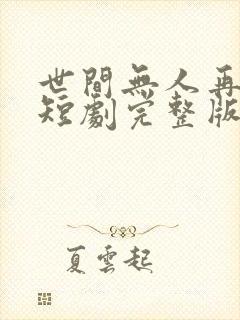 世間無人再
短劇完整版
夏雲起